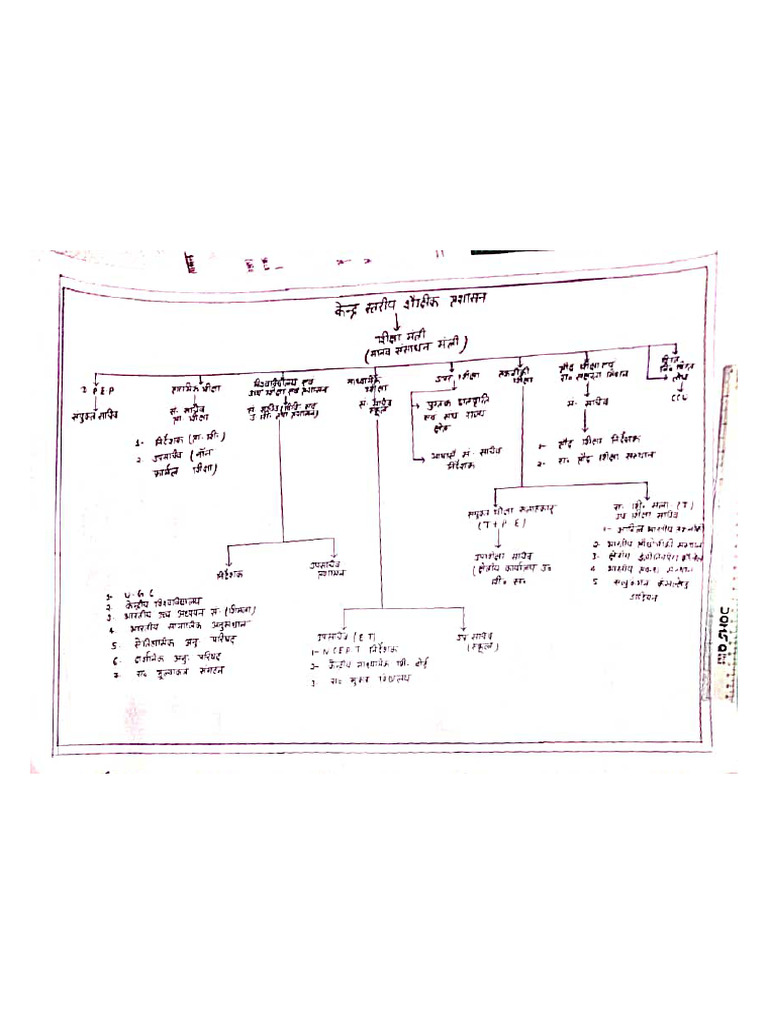 केन्द्र स्तरीय शैक्षिक प्रशासन
शिक्षा मंत्री
(मानव संसाधन मंत्री)
P.E.P
संयुक्त सचिव
प्राथमिक शिक्षा
सं. सचिव
प्रा. शिक्षा
1- निर्देशक (प्रा. शि.)
2. उपसचिव (नॉन
फार्मल शिक्षा)
विश्वविद्यालय एवं
उच्च शिक्षा एवं प्रशासन
माध्यमिक
शिक्षा
सं. सचिव
स्कूल
उच्च शिक्षा
पुस्तक छात्रवृत्ति
एवं संघ राज्य
क्षेत्र
भाषाएँ सं. सचिव
निर्देशक
तकनीकी
शिक्षा
प्रौढ़ शिक्षा एवं
रा० साक्षरता मिशन
सं. सचिव
1- प्रौढ़ शिक्षा निर्देशक
2- रा. प्रौढ़ शिक्षा संस्थान
संयुक्त शिक्षा सलाहकार
(T + P E)
उपशिक्षा सचिव
(क्षेत्रीय कार्यालय
(T)
उप शिक्षा सचिव
1- अखिल भारतीय तकनीकी
2- भारतीय प्रौद्योगिकी संस्थान
3- क्षेत्रीय इंजीनियरिंग कॉलेज
4 भारतीय संस्थान
5
निर्देशक
1- U.G.C
2 केन्द्रीय विश्वविद्यालय
3. भारतीय उच्च अध्ययन सं. (शिमला)
4 भारतीय सामाजिक अनुसंधान
5. ऐतिहासिक अनु. परिषद्
6. दार्शनिक अनु. परिषद्
7- रा० मूल्यांकन संगठन
उपसचिव
प्रशासन
उपसचिव (E T)
1- N C E R T निर्देशक
2- केन्द्रीय माध्यमिक शि. बोर्ड
3. रा० मुक्त विद्यालय
उप सचिव
(स्कूल)